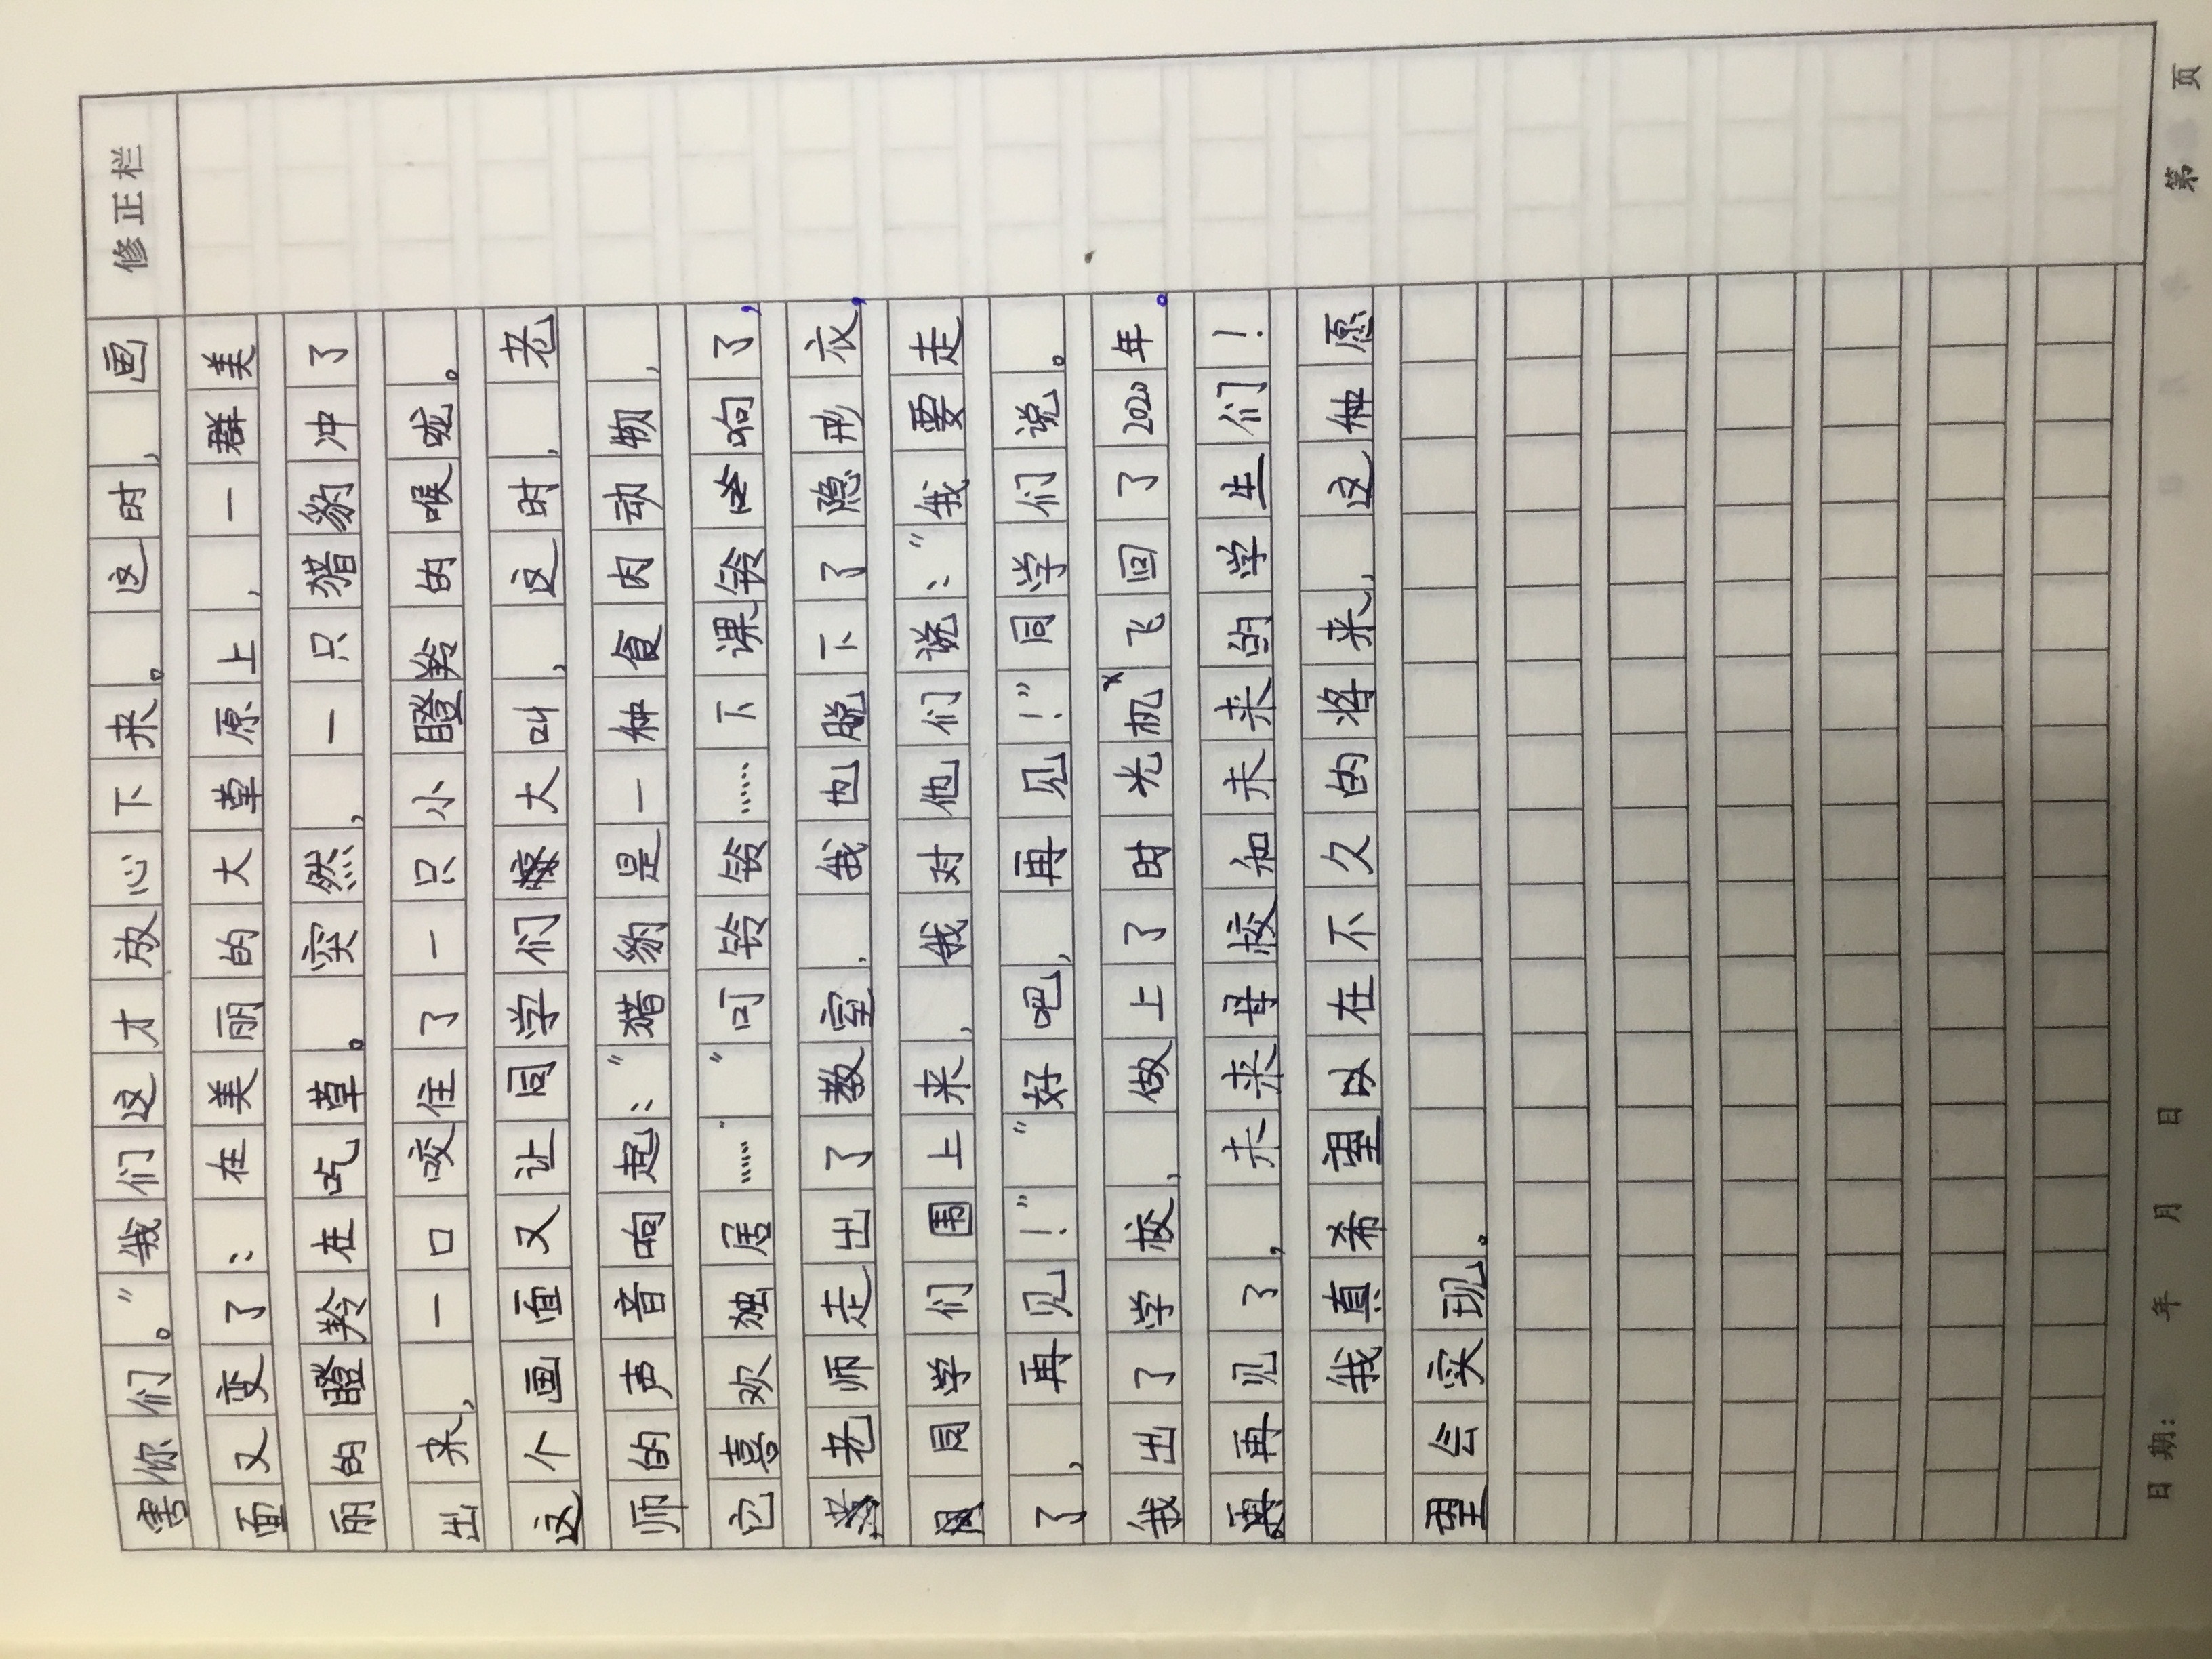 修正栏
害你们。”我们这才放心下来。这时,画
面又变了:在美丽的大草原上,一群美
丽的瞪羚在吃草。突然,一只猎豹冲了
出来,一口咬住了一只小瞪羚的喉咙。
这个画面又让同学们大叫,这时,老
师的声音响起:“猎豹是一种食肉动物,
它喜欢独居……”“叮铃铃……下课铃响了,
老师走出了教室,我也脱下了隐形衣,
同学们围上来,我对他们说:“我要走
了,再见!”“好吧,再见!”同学们说。
我出了学校,做上了时光机飞回了2020年。
再见了,未来母校和未来的学生们!
我真希望以在不久的将来,这种愿
望会实现。
日期: 年 月 日 第 页